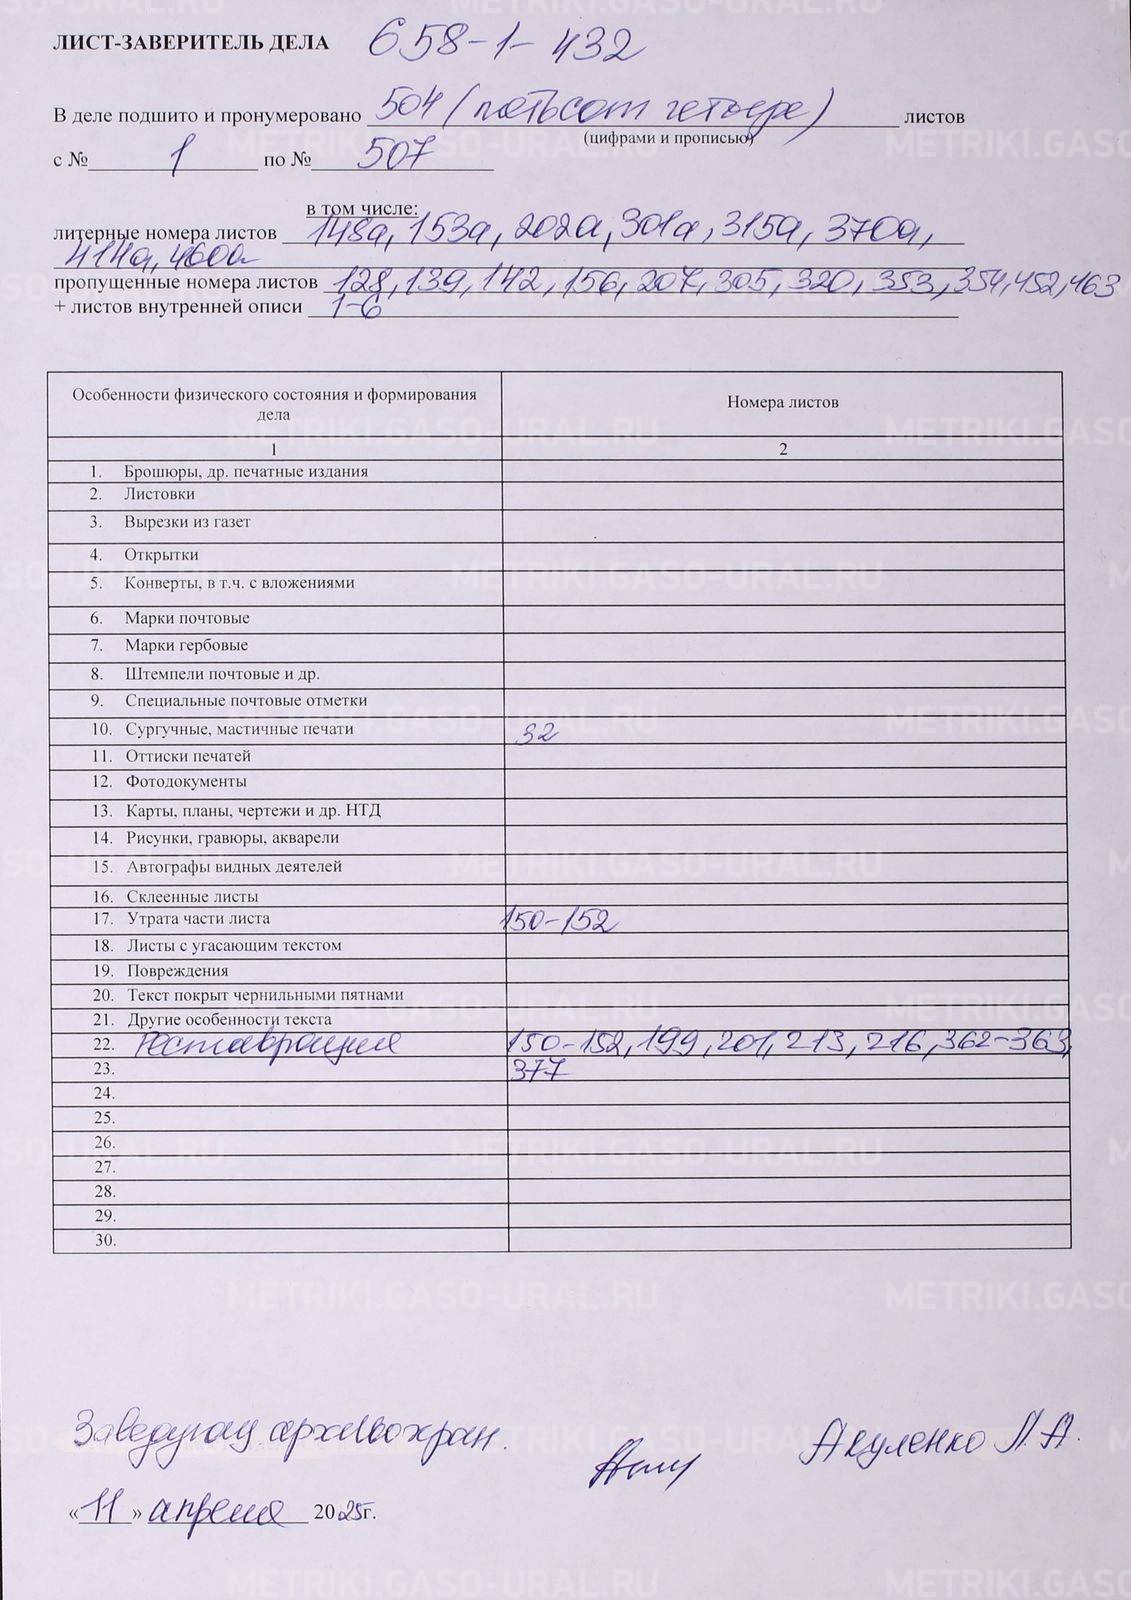 ЛИСТ-ЗАВЕРИТЕЛЬ ДЕЛА 658-1-432
В деле подшито и пронумеровано 504 (пятьсот четыре) листов
(цифрами и прописью)
с № 1 по № 507
в том числе:
литерные номера листов 148а, 153а, 202а, 301а, 315а, 370а,
414а, 460а
пропущенные номера листов 128, 139, 142, 156, 207, 305, 320, 353, 354, 452, 463
+ листов внутренней описи 1-6
Особенности физического состояния и формирования дела Номера листов
1 2
1. Брошюры, др. печатные издания
2. Листовки
3. Вырезки из газет
4. Открытки
5. Конверты, в т.ч. с вложениями
6. Марки почтовые
7. Марки гербовые
8. Штемпели почтовые и др.
9. Специальные почтовые отметки
10. Сургучные, мастичные печати 32
11. Оттиски печатей
12. Фотодокументы
13. Карты, планы, чертежи и др. НТД
14. Рисунки, гравюры, акварели
15. Автографы видных деятелей
16. Склеенные листы
17. Утрата части листа 150-152
18. Листы с угасающим текстом
19. Повреждения
20. Текст покрыт чернильными пятнами
21. Другие особенности текста
22. Реставрация 150-152, 199, 201, 213, 216, 362-363,
23. 377
24.
25.
26.
27.
28.
29.
30.
Заведующ. архивохран. Акуленко Л.А.
«11» апреля 2025г.
METRIKI.GASO-URAL.RU